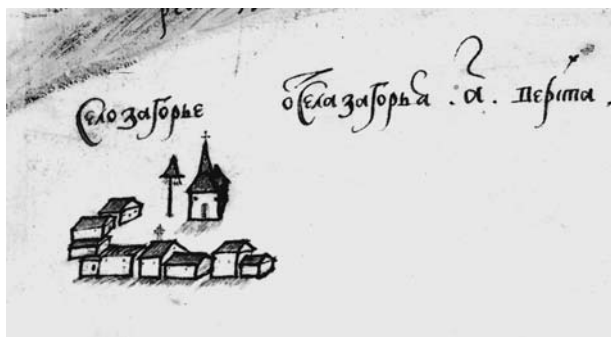 Село загорье
ѿ Села загорьа . а҃ . верста